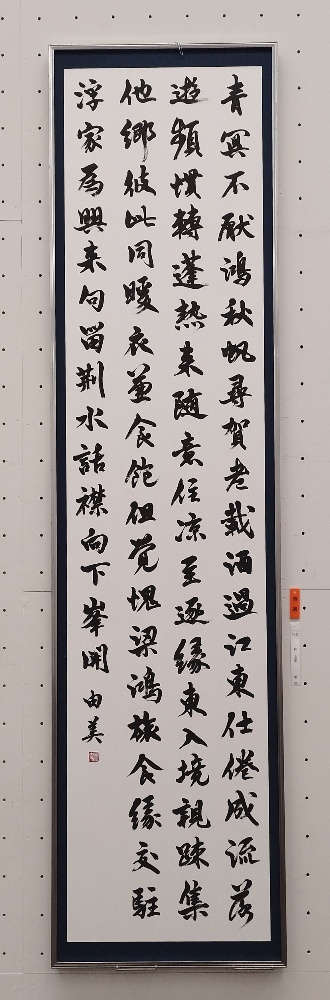 青冥不厭鴻秋帆尋賀老載酒過江東仕倦成流落
遊頻慣轉蓬熱来随意住凉至逐縁東入境親疎集
他郷彼此同暖衣兼食飽但覚愧梁鴻旅食縁交駐
浮家為興来句留荊水話襟向下峯開 由美